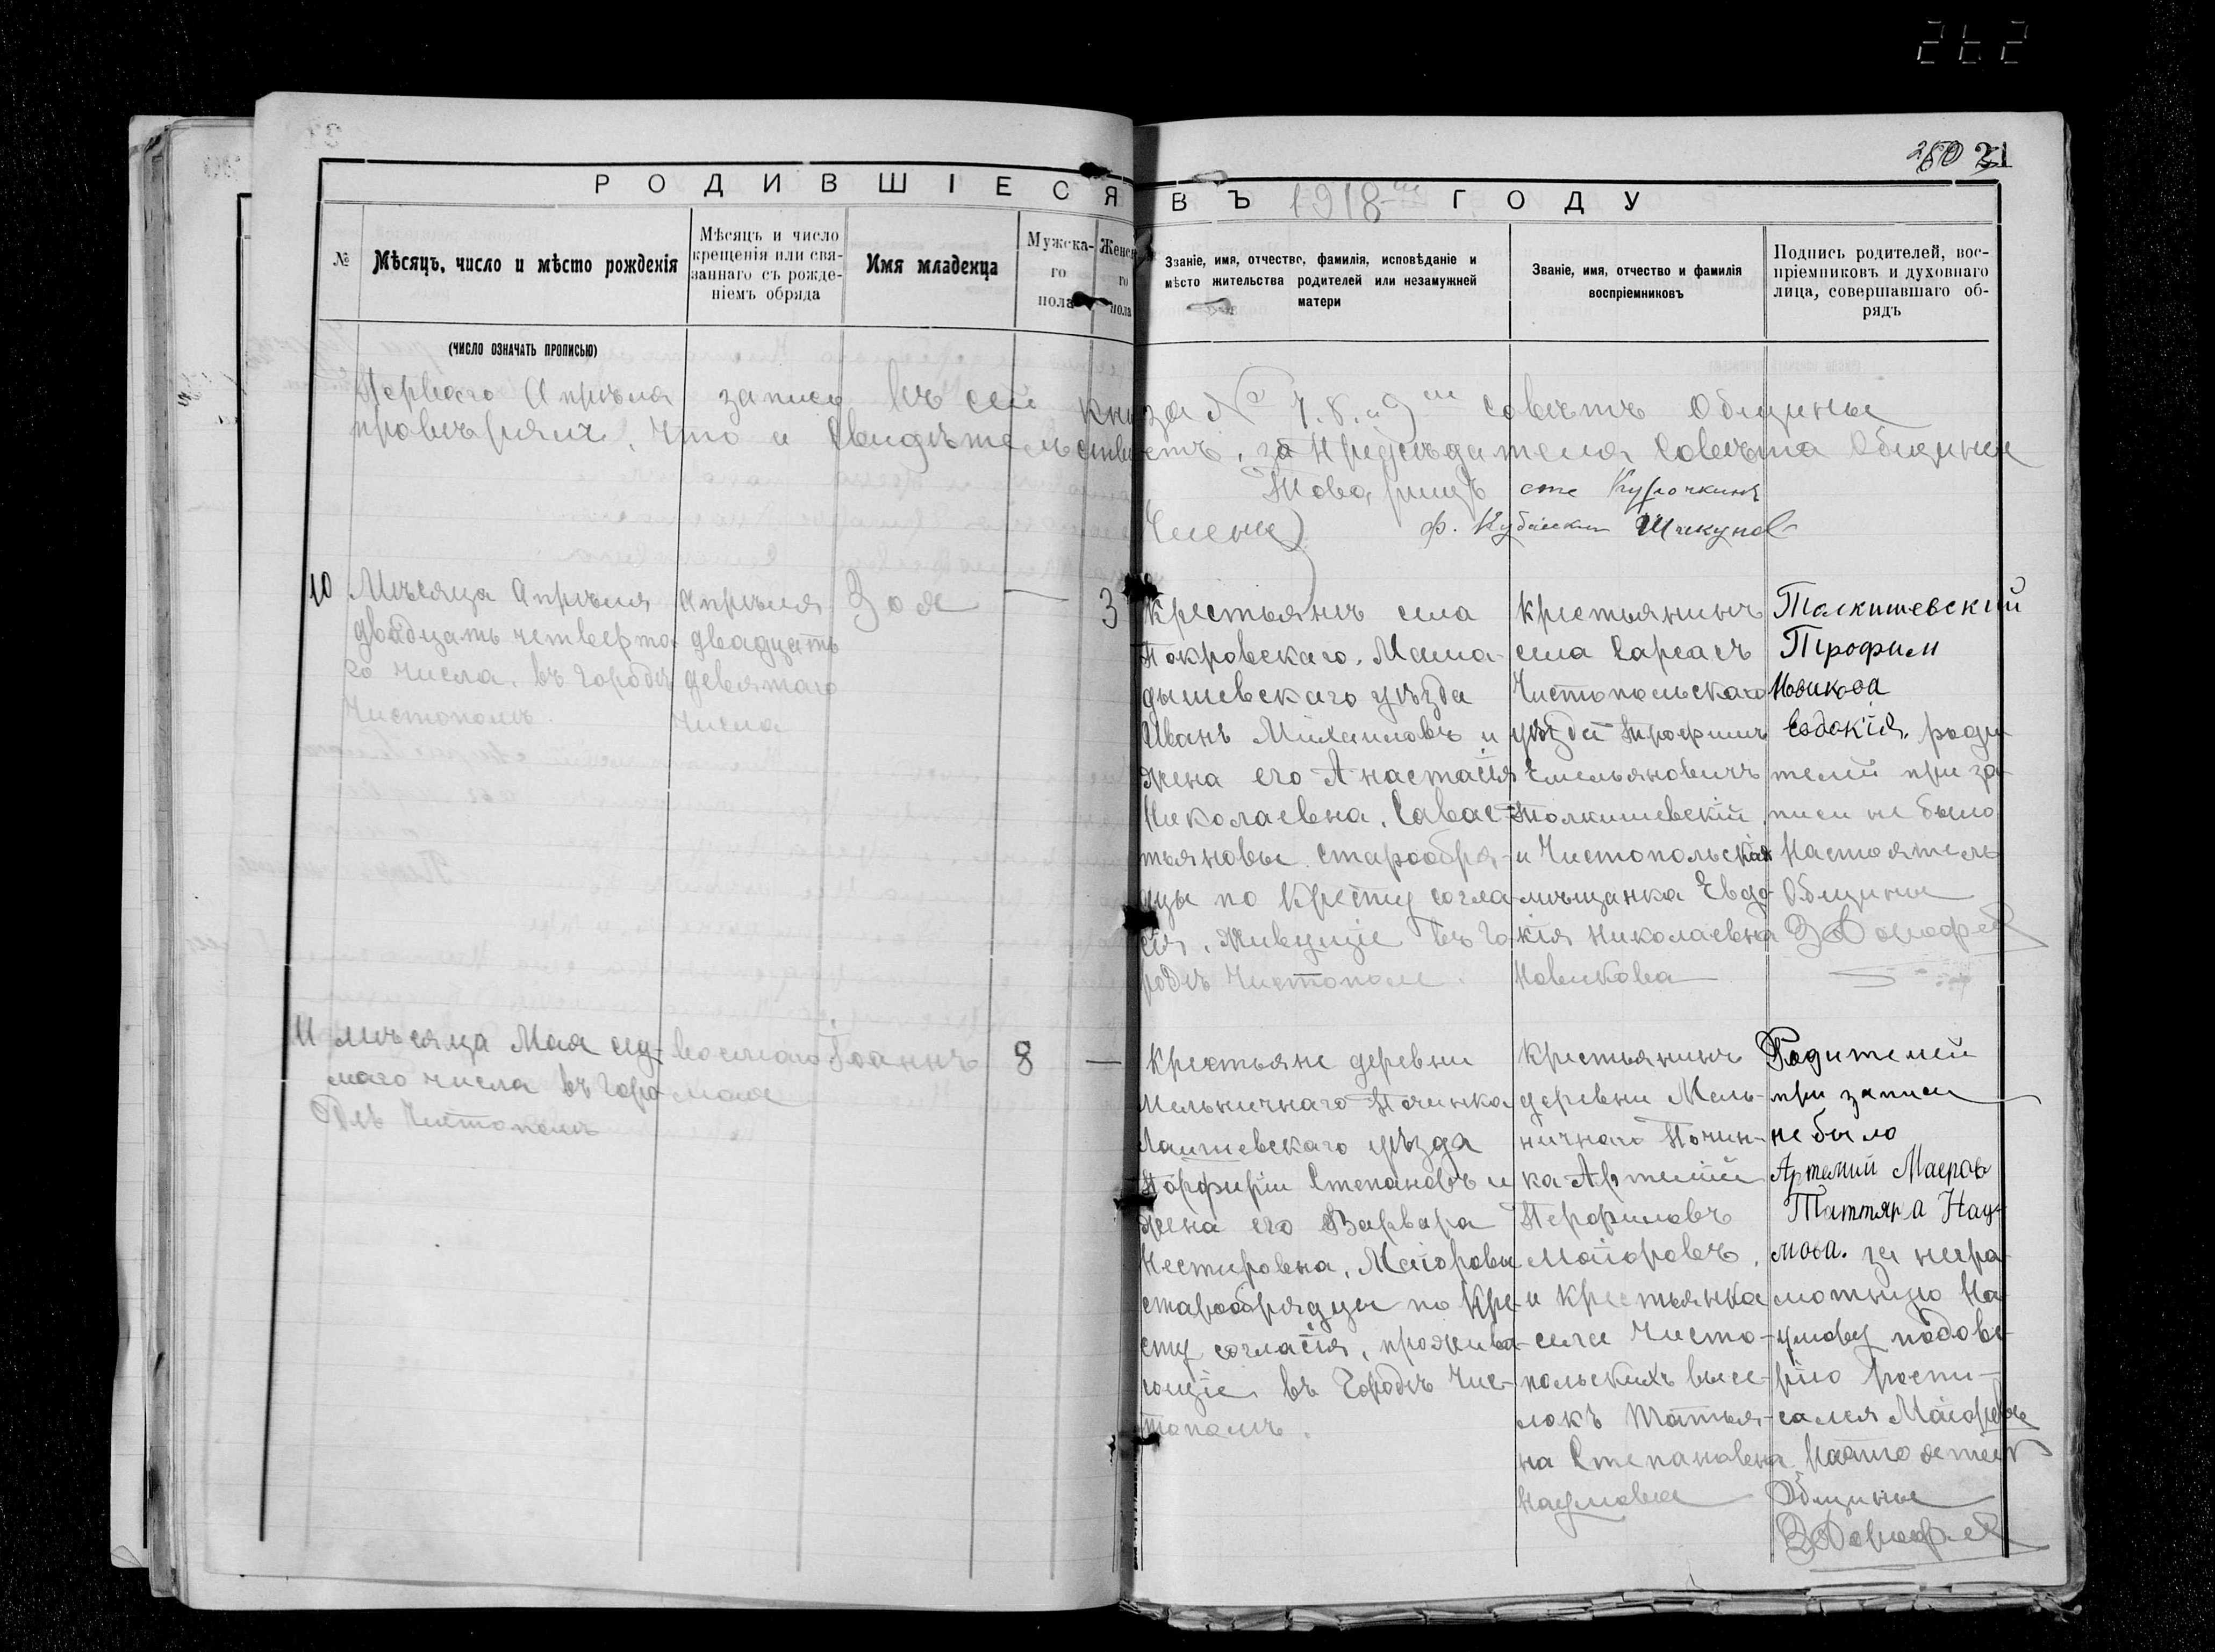 262
280 21
РОДИВШІЕСЯ ВЪ 1918 ГОДУ
№
Мѣсяцъ, число и мѣсто рожденія
Мѣсяцъ и число
крещенія или свя-
заннаго съ рожде-
ніемъ обряда
Имя младенца
Мужска-
го
пола
Женск
го
пола
Званіе, имя, отчество, фамилія, исповѣданіе и
мѣсто жительства родителей или незамужней
матери
Званіе, имя, отчество и фамилія
воспріемниковъ
Подпись родителей, вос-
пріемниковъ и духовнаго
лица, совершавшаго об-
рядъ
(ЧИСЛО ОЗНАЧАТЬ ПРОПИСЬЮ)
Перваго Апрѣля запись въ сей кни за № 7. 8. и 9 Совѣтъ Общины
провѣрялъ, что и свидѣтельствуетъ, за Предсѣдателя Совѣта Общины
Товарищъ Курочкинъ
Члены) Шикунов
10
Мѣсяца Апрѣля
двадцать четверта
го числа. въ городѣ
Чистополѣ.
Апрѣля
двадцать
девятаго
числа
Зоя
—
3
Крестьянъ села
Покровскаго, Мама-
дышевскаго уѣзда
Иванъ Михаиловъ и
жена его Анастасія
Николаевна, Савас-
тьяновы старообря-
дцы по Кресту согла
сія, живущіе въ го
родѣ Чистополѣ.
Крестьянинъ
села Сарсасъ
Чистопольскаго
уѣзда Трофимъ
Емельяновичъ
Толкишевскій
и Чистопольская
мѣщанка Евдо-
кія Николаевна
Новикова
Талкишевский
Трофим
Новикова
Евдокія, роди-
телей при за-
писи не было
Настоятель
Общины
11
мѣсяца Мая сед-
маго числа въ горо
дѣ Чистополѣ
восмаго
мая
Іоаннъ
8
—
Крестьяне деревни
Мельничнаго Починка
Лаишевскаго уѣзда
Порфирій Степановъ и
жена его Варвара
Нестировна, Маіоровы
старообрядцы по Кре-
сту согласія, прожива-
ющіе въ городѣ Чис-
тополѣ.
Крестьянинъ
деревни Мель-
ничнаго Почин-
ка Артемій
Перфиловъ
Маіоровъ,
и крестьянка
села Чисто-
польскихъ высе-
локъ Татья-
на Степановна
Наумова
Родителей
при записи
не было
Артемий Маеров
Таттяна Нау-
мова. за негра
мотную На-
умову подове-
рію рости-
сался Маіоровъ
Настоятель
Общины